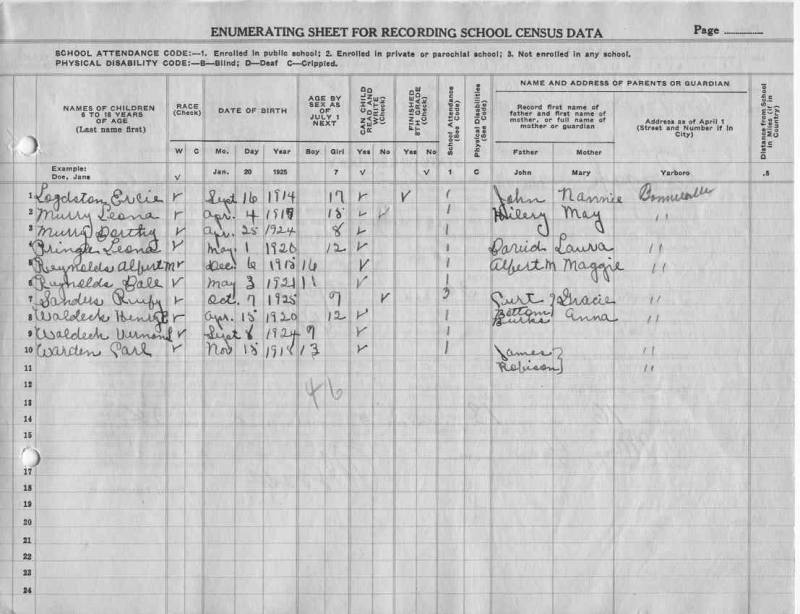 ENUMERATING SHEET FOR RECORDING SCHOOL CENSUS DATA Page
SCHOOL ATTENDANCE CODE:—1. Enrolled in public school; 2. Enrolled in private or parochial school; 3. Not enrolled in any school.
PHYSICAL DISABILITY CODE:—B—Blind; D—Deaf C—Crippled.
NAMES OF CHILDREN
6 TO 18 YEARS
OF AGE
(Last name first)
RACE
(Check)
W C
DATE OF BIRTH
Mo. Day Year
AGE BY
SEX AS
OF
JULY 1
NEXT
Boy Girl
CAN CHILD
READ AND
WRITE
(Check)
Yes No
FINISHED
8TH GRADE
(Check)
Yes No
School Attendance
(See Code)
Physical Disabilities
(See Code)
NAME AND ADDRESS OF PARENTS OR GUARDIAN
Record first name of
father and first name of
mother, or full name of
mother or guardian
Father Mother
Address as of April 1
(Street and Number if in
City)
Distance from School
in Miles (if in
Country)
Example:
Doe, Jane V Jan. 20 1925 7 V V 1 C John Mary Yarboro .5
1 Logdston v Sept 16 1914 17 v v 1 John Nannie Bonnieville
2 Murry Leona v Apr. 4 v v 1 Hilery May "
3 Murry Dorthy v Apr. 25 1924 8 v 1
4 Pringle Leona v May 1 1920 12 v 1 David Laura "
5 Reynolds Albert M v Dec. 6 16 v 1 Albert M Maggie "
6 Reynolds Dale v May 3 1921 11 v 1
7 Sanders v Oct. 7 1925 v 3 Curt Gracie "
8 Waldeck Henry v Apr. 15 1920 12 v 1 Burks Anna "
9 Waldeck Vernon v Sept 8 1924 v 1
10 Warden Carl v Nov 13 v 1 James "
11 Robison "
12
13 46
14
15
17
18
19
20
21
22
23
24